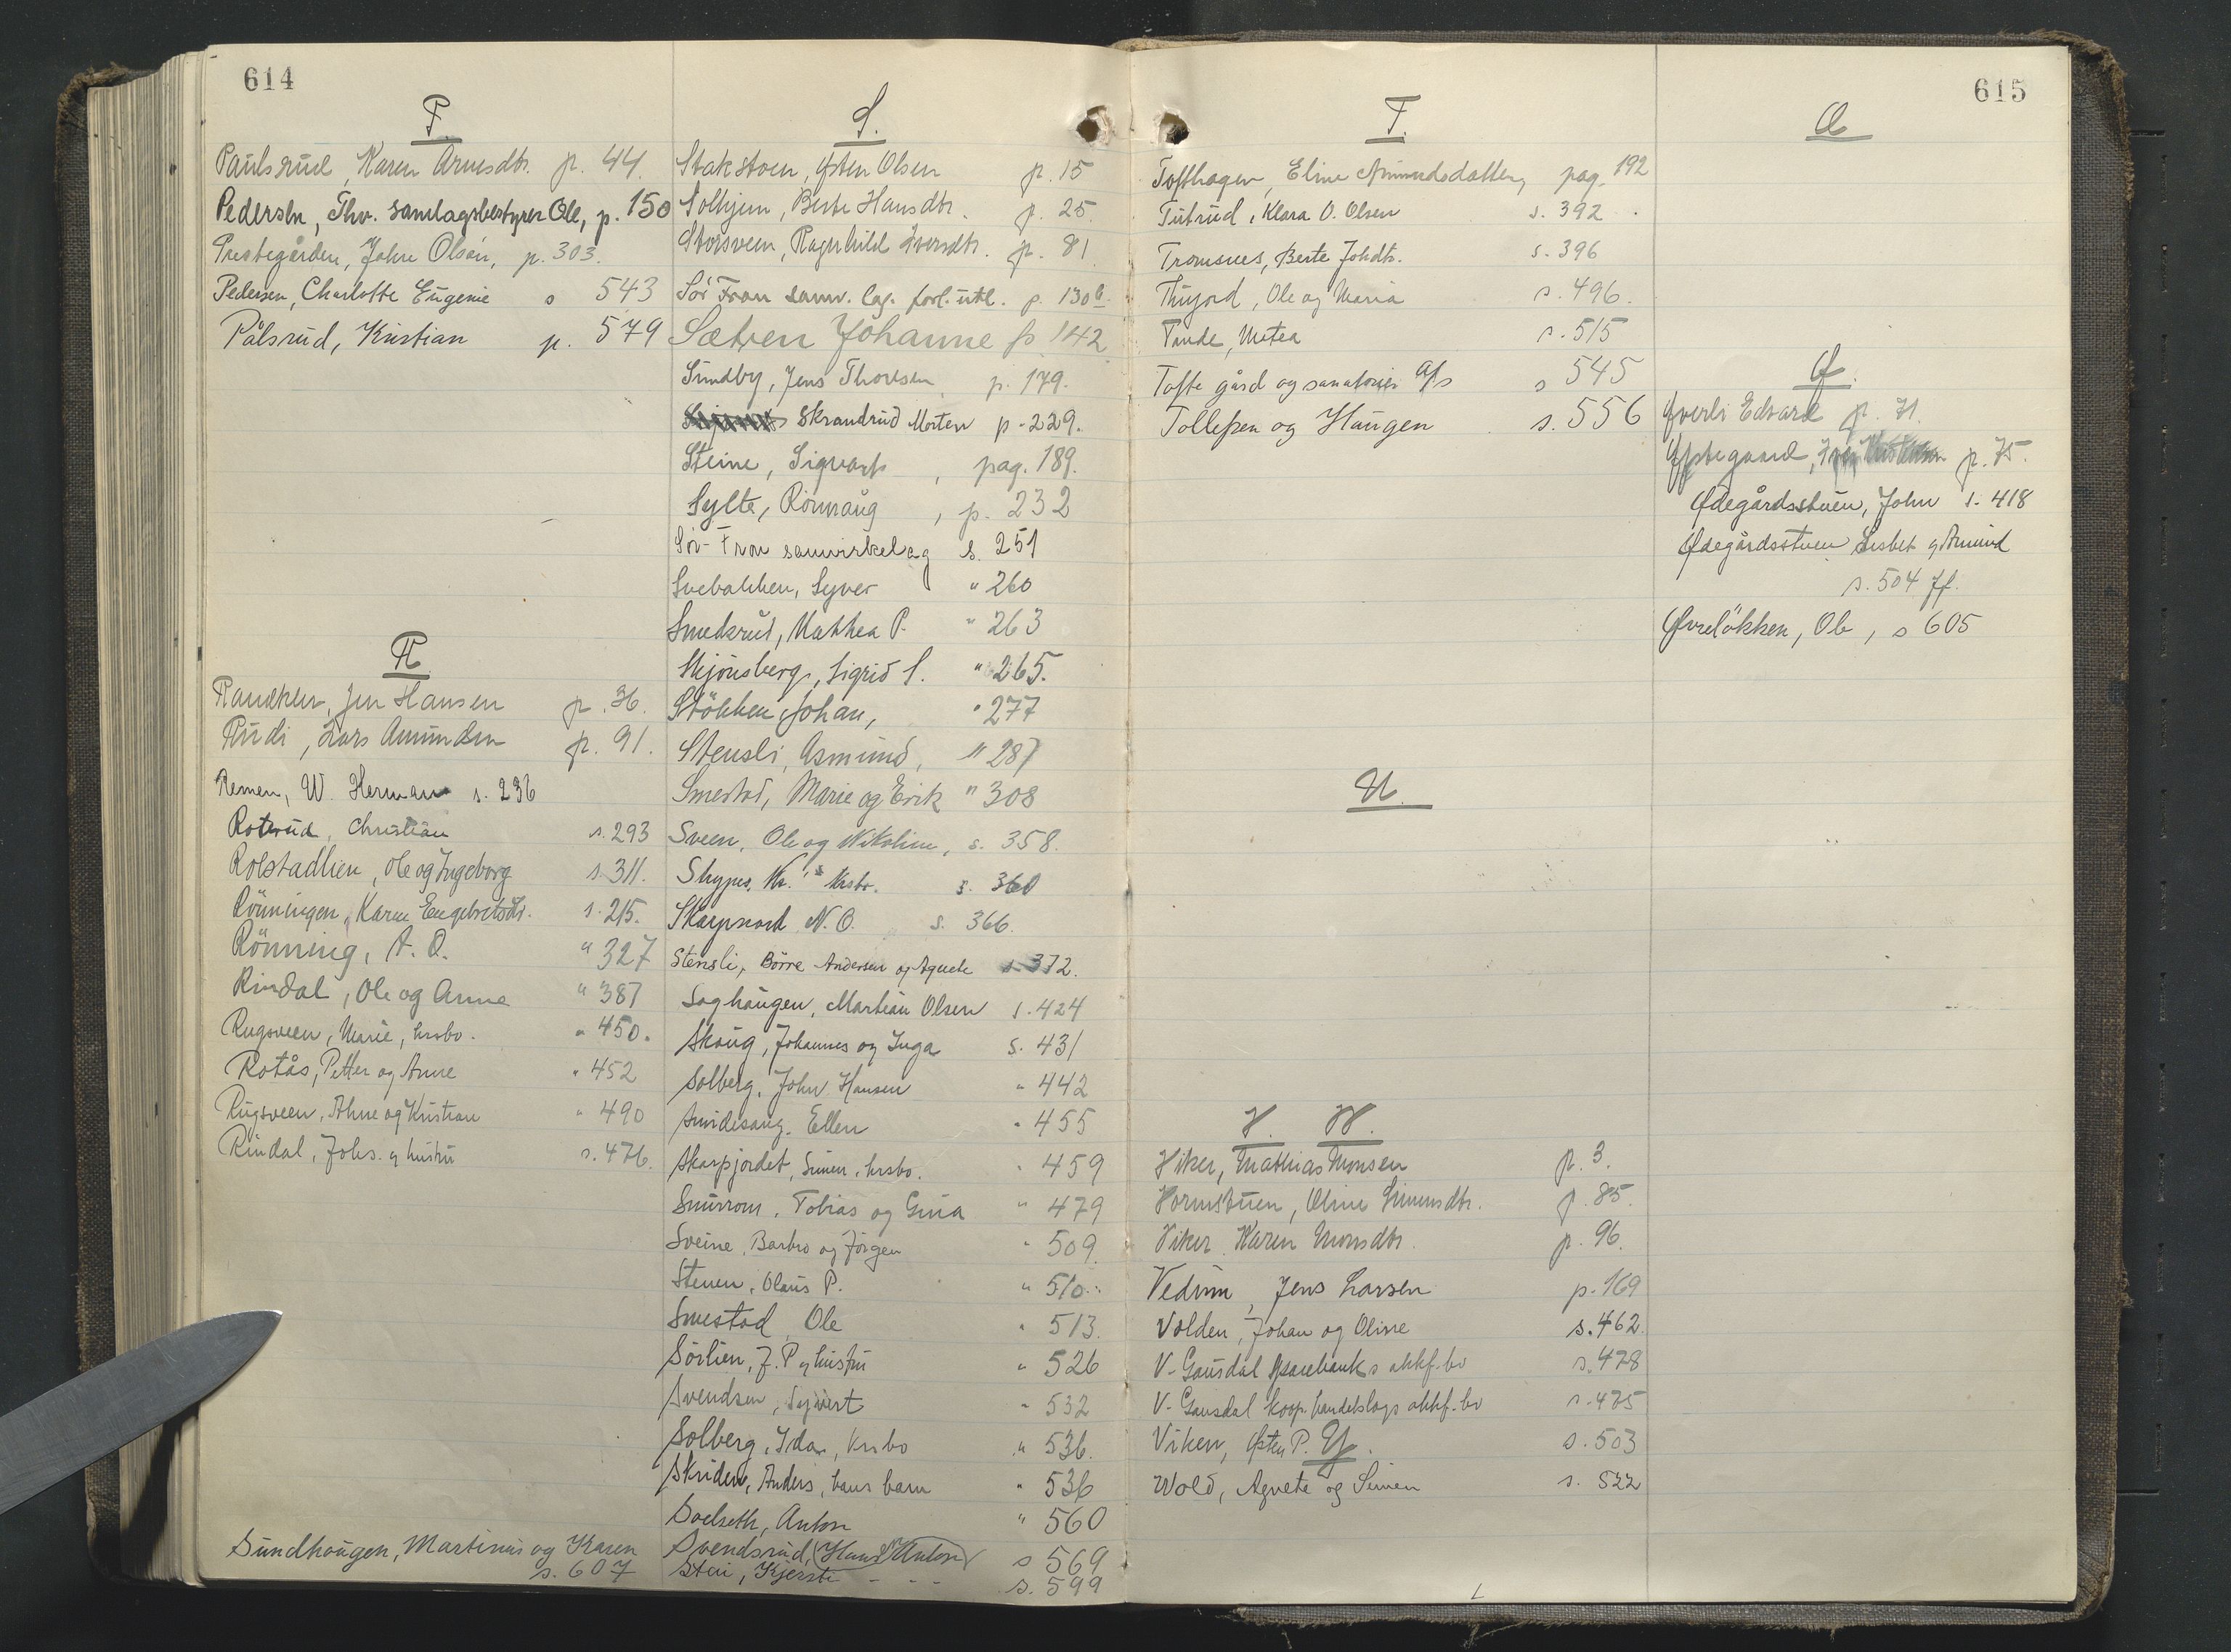 614
P.
Paulsrud, Karen Arnesdtr. p. 44.
Pedersen, Thv. samlagsbestyrer Ole, p. 150
Prestegården, Johan Olsen, p. 303.
Pedersen, Charlotte Eugenie s 543
Pålsrud, Kristian p. 579
R.
Hansen p. 36.
Rudi, Lars Amundsen p. 91.
Remen, W. Herman s. 236
Roterud, Christian s. 293
Rolstadlien, Ole og Ingeborg s. 311.
Rönningen, Karen Engebretsdtr. s. 215.
Rönning, A. O. " 327
Rindal, Ole og Anne " 387
Rugsveen, Marie, hrsbo. " 450.
Rotås, Petter og Anne " 452
Rugsveen, Ahne og Kristian " 490
Rindal, Johs. og hustru s. 476.
Sundhaugen, Martinus og Karen
s. 607
S.
Stakstoen, Østen Olsen p. 15
Solhjem, Berte Hansdtr. p. 25.
Storsveen, Ragnhild Iversdtr. p. 81.
Sör Fron samv. lag. forl. utl. p. 130 b.
Sætren Johanne p 142
Sundby, Jens Thoresen, p. 179.
Skrandrud Morten p. 229.
Steine, Sigvart, pag. 189.
Sylte, Rönnaug, p. 232
Sör-Fron samvirkelag s. 251
Svebakken, Syver " 260
Smedsrud, Mathea P. " 263
Skjönsberg, Sigrid S. " 265.
Stökken, Johan, " 277
Stensli, Asmund, " 287
Smestad, Marie og Erik " 308
Sveen, Ole og Nikoline, s. 358.
s. 360
Skarpnord N. O. s. 366.
Stensli, Börre Andersen og Agnete s. 372.
Soghaugen, Martian Olsen s. 424
Skoug, Johannes og Inga s. 431
Solberg, John Hansen " 442
Smidesang, Ellen " 455
Skarpjordet, Simen, hrsbo. " 459
Smurrom, Tobias og Gina " 479
Sveine, Barbro og Jörgen " 509.
Stenen, Olaus P. " 510.
Smestad, Ole " 513.
Sörlien, J. P. og hustru " 526
Svendsen, Syvert " 532
Solberg, Ida, hrsbo " 536.
Skriden, Anders, hans barn " 536
Soelseth, Anton " 560
Svendsrud, (Hans) Anton s 569
Stui, Kjersti - - - s. 599
615
T.
Tofthagen, Eline Amundsdatter, pag. 192
Tutrud, Klara O. Olsen s. 392.
Tromsnes, Berte Johdtr. s. 396
Thujord, Ole og Maria s. 496.
Tande, Metea s. 515
Tofte gård og sanatorier A/s s 545
Tollefsen og Haugen s. 556
U.
V. W.
Viker, Mathias Monsen p. 3.
Vormstuen, Oline Simensdtr. p. 85.
Viker Karen Monsdtr. p. 96.
Vedum, Jens Larsen p. 169
Volden, Johan og Oline s. 462.
V. Gausdal sparebanks akkf.bo s. 478
V. Gausdal koop. handelslags akkf.bo s. 475
Viken, Østen P. s. 503
Y.
Wold, Agnete og Simen s. 522
Æ
Ø.
Øverli Edvard p. 71.
Øystegaard, Iver p. 75.
Ødegårdsstuen, John s. 418
Ødegårdsstuen Lisbet og Amund
s. 504 ff.
Øvrelökken, Ole, s 605